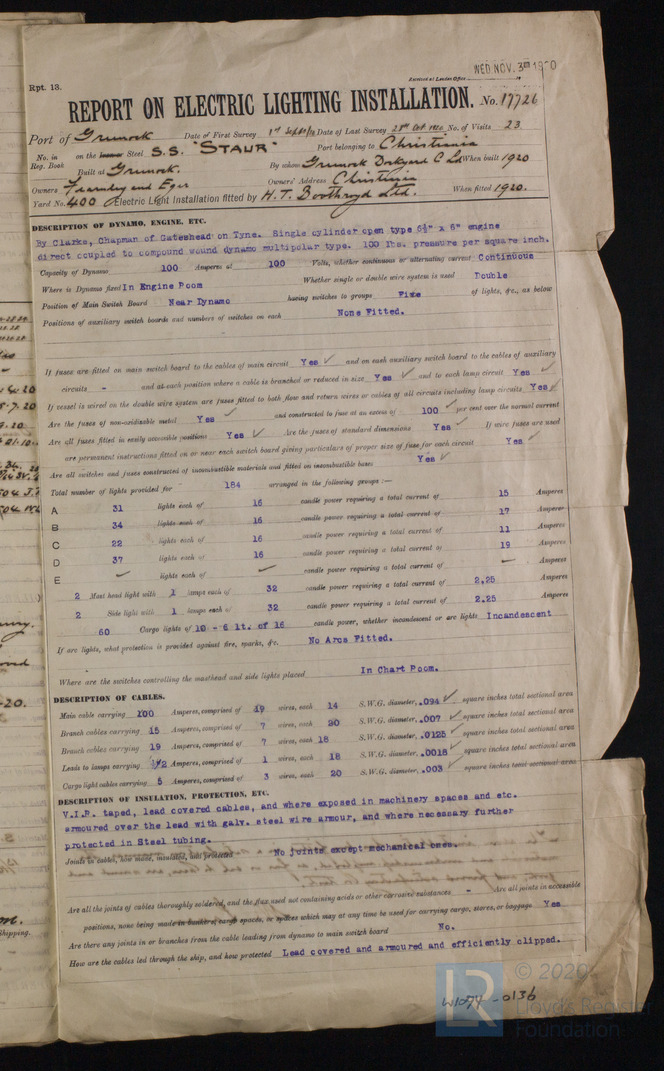 WED. NOV. 3RD 1920
Rpt. 13.
Received at London Office
REPORT ON ELECTRIC LIGHTING INSTALLATION. No. 17726
Port of Greenock Date of First Survey 1st Sept Date of Last Survey 28th Oct 1920 No. of Visits 23
No. in Reg. Book on the Iron or Steel S.S. "STAUR" Port belonging to Christiania
Built at Greenock. By whom Greenock Dockyard C Ld When built 1920
Owners Fearnley and Eger Owners' Address Christiania
Yard No. 400 Electric Light Installation fitted by H.T. Boothroyd Ltd. When fitted 1920.
DESCRIPTION OF DYNAMO, ENGINE, ETC.
By Clarke, Chapman of Gateshead on Tyne. Single cylinder open type 6½" x 6" engine
direct coupled to compound wound dynamo multipolar type. 100 lbs. pressure per square inch.
Capacity of Dynamo 100 Amperes at 100 Volts, whether continuous or alternating current Continuous
Where is Dynamo fixed In Engine Room Whether single or double wire system is used Double
Position of Main Switch Board Near Dynamo having switches to groups Five of lights, &c., as below
Positions of auxiliary switch boards and numbers of switches on each None Fitted.
If fuses are fitted on main switch board to the cables of main circuit Yes ✓ and on each auxiliary switch board to the cables of auxiliary
circuits - and at each position where a cable is branched or reduced in size Yes ✓ and to each lamp circuit Yes ✓
If vessel is wired on the double wire system are fuses fitted to both flow and return wires or cables of all circuits including lamp circuits Yes ✓
Are the fuses of non-oxidizable metal Yes ✓ and constructed to fuse at an excess of 100 ✓ per cent over the normal current
Are all fuses fitted in easily accessible positions Yes ✓ Are the fuses of standard dimensions Yes ✓ If wire fuses are used
are permanent instructions fitted on or near each switch board giving particulars of proper size of fuse for each circuit Yes ✓
Are all switches and fuses constructed of incombustible materials and fitted on incombustible bases Yes ✓
Total number of lights provided for 184 arranged in the following groups :—
A 31 lights each of 16 candle power requiring a total current of 15 Amperes
B 34 lights each of 16 candle power requiring a total current of 17 Amperes
C 22 lights each of 16 candle power requiring a total current of 11 Amperes
D 37 lights each of 16 candle power requiring a total current of 19 Amperes
E ✓ lights each of ✓ candle power requiring a total current of — Amperes
2 Mast head light with 1 lamps each of 32 candle power requiring a total current of 2,25 Amperes
2 Side light with 1 lamps each of 32 candle power requiring a total current of 2.25 Amperes
60 Cargo lights of 10 - 6 lt. of 16 candle power, whether incandescent or arc lights Incandescent
If arc lights, what protection is provided against fire, sparks, &c. No Arcs Fitted.
Where are the switches controlling the masthead and side lights placed In Chart Room.
DESCRIPTION OF CABLES.
Main cable carrying 100 Amperes, comprised of 19 wires, each 14 S.W.G. diameter, .094 ✓ square inches total sectional area
Branch cables carrying 15 Amperes, comprised of 7 wires, each 20 S.W.G. diameter, .007 ✓ square inches total sectional area
Branch cables carrying 19 Amperes, comprised of 7 wires, each 18 S.W.G. diameter, .0125 ✓ square inches total sectional area
Leads to lamps carrying 1/2 Amperes, comprised of 1 wires, each 18 S.W.G. diameter, .0018 ✓ square inches total sectional area
Cargo light cables carrying 5 Amperes, comprised of 3 wires, each 20 S.W.G. diameter, .003 ✓ square inches total sectional area
DESCRIPTION OF INSULATION, PROTECTION, ETC.
V.I.R. taped, lead covered cables, and where exposed in machinery spaces and etc.
armoured over the lead with galv. steel wire armour, and where necessary further
protected in Steel tubing.
Joints in cables, how made, insulated, and protected No joints except mechanical ones.
Are all the joints of cables thoroughly soldered, and the flux used not containing acids or other corrosive substances - Are all joints in accessible
positions, none being made in bunkers, cargo spaces, or spaces which may at any time be used for carrying cargo, stores, or baggage Yes
Are there any joints in or branches from the cable leading from dynamo to main switch board No.
How are the cables led through the ship, and how protected Lead covered and armoured and efficiently clipped.
W1074-0136
LR
© 2020
Lloyd's Register
Foundation